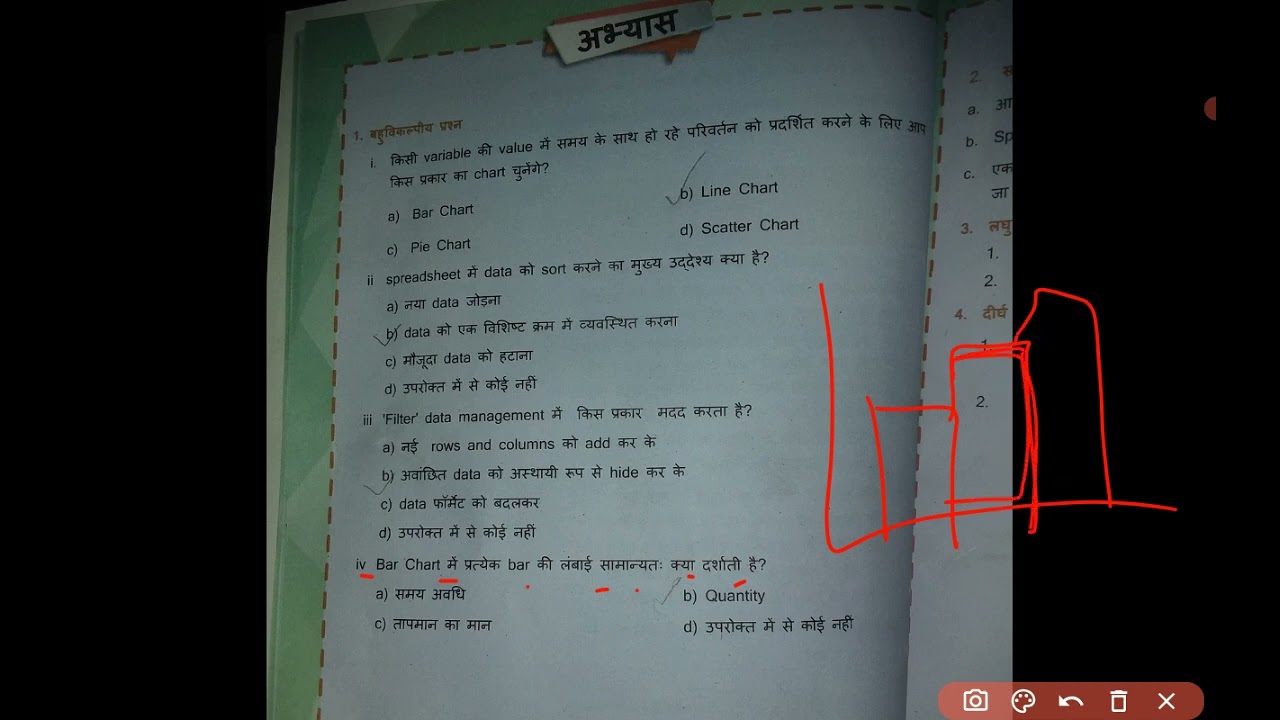 अभ्यास
1. बहुविकल्पीय प्रश्न
i. किसी variable की value में समय के साथ हो रहे परिवर्तन को प्रदर्शित करने के लिए आप
किस प्रकार का chart चुनेंगे?
a) Bar Chart
b) Line Chart
c) Pie Chart
d) Scatter Chart
ii spreadsheet में data को sort करने का मुख्य उद्देश्य क्या है?
a) नया data जोड़ना
b) data को एक विशिष्ट क्रम में व्यवस्थित करना
c) मौजूदा data को हटाना
d) उपरोक्त में से कोई नहीं
iii 'Filter' data management में किस प्रकार मदद करता है?
a) नई rows and columns को add कर के
b) अवांछित data को अस्थायी रूप से hide कर के
c) data फॉर्मेट को बदलकर
d) उपरोक्त में से कोई नहीं
iv Bar Chart में प्रत्येक bar की लंबाई सामान्यतः क्या दर्शाती है?
a) समय अवधि
b) Quantity
c) तापमान का मान
d) उपरोक्त में से कोई नहीं
2.
a. आ
b. Sp
c. एक
जा
3. लघु
1.
2.
4. दीर्घ
1.
2.